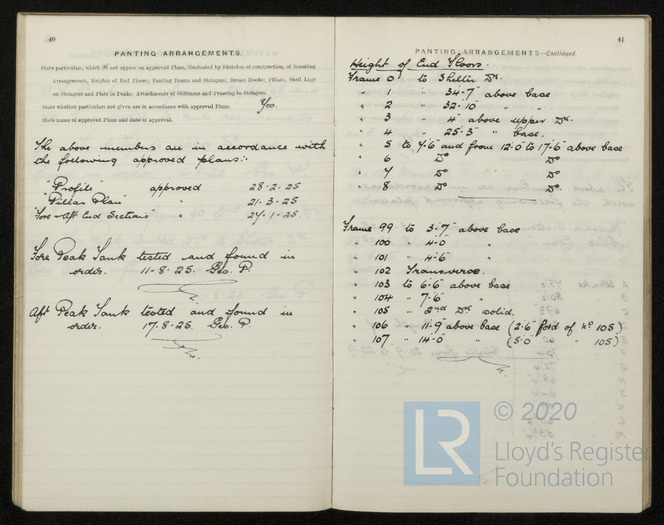 40
PANTING ARRANGEMENTS
State particulars, which do not appear on approved Plans, illustrated by Sketches of construction, of Scantling
Arrangements, Heights of End Floors; Panting Beams and Stringers; Breast Hooks; Pillars; Shell Lugs
on Stringers and Plate in Peaks; Attachments of Stiffeners and Framing to Stringers.
State whether particulars not given are in accordance with approved Plans.
State name of approved Plan and date of approval.
The above members are in accordance with
the following approved plans:-
"Profile" approved 28-2-25
"Pillar Plan" " 21-3-25
"Fore & Aft End Sections" " 24-1-25
Fore Peak Tank tested and found in
order. 11-8-25. Geo. P.
Aft Peak Tank tested and found in
order. 17.8.25. Geo. P
41
PANTING ARRANGEMENTS—Continued.
Height of End Floors.
Frame 0 to Shelter Dk.
" 1 " 34-7" above base
" 2 " 32-10" " "
" 3 " 4" above upper Dk.
" 4 " 25-3" " base.
" 5 to 7-6" and from 12-0" to 17-6" above base
" 6 Do Do
" 7 Do Do
" 8 Do Do.
Frame 99 to 3-7" above base
" 100 " 4-0 "
" 101 " 4-6" "
" 102 Transverse.
" 103 to 6-6" above base
" 104 " 7-6" "
" 105 " 2nd Dk solid.
" 106 " 11-9" above base (2-6" ford of No 105)
" 107 " 14-0" " (5-0 " 105)
© 2020
LR
Lloyd's Register
Foundation